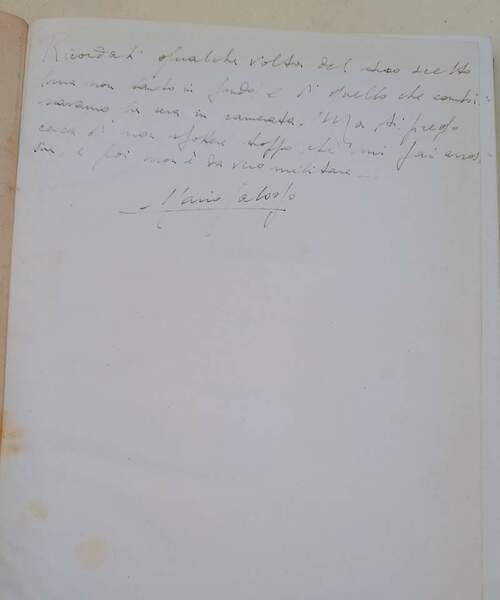 Ricordati qualche volta del tuo scetto
ma non tanto in fondo e di quello che combi-
navamo la sera in camerata. Ma ti prego
cerca di non sfotter troppo ché mi fai arros-
sire e poi non è da vero militare